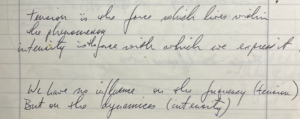 tension is the force which lives within
the phenomenon
intensity is the force with which we express it
We have no influence on the frequency (tension)
But on the dynamics (intensity)